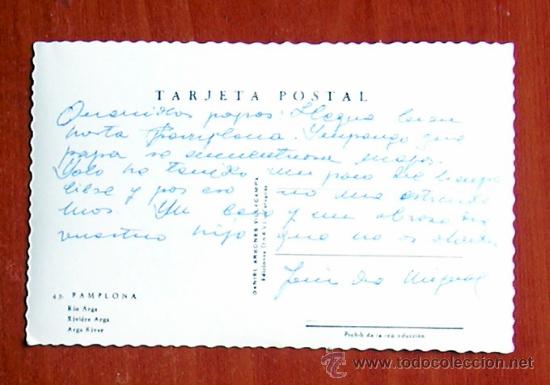 TARJETA POSTAL
Queridos papas: Llegue bien
hasta Pamplona. Supongo que
papa se encuentra mejor.
Solo he tenido un poco de tiempo
libre y por eso no me extiendo
mas. Un beso y un abrazo de
vuestro hijo que no os olvida
43. PAMPLONA
Río Arga
Rivière Arga
Arga River
DANIEL ARBONES VILLACAMPA
Prohibida la reproducción
todocoleccion
www.todocoleccion.net